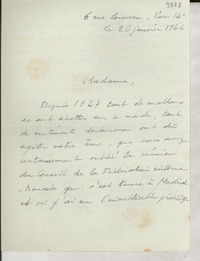 6 rue Lunain, Paris 14e
le 20 janvier 1946
Madame,
Depuis 1927 tant de malheurs
se sont abattus sur le monde, tant
de sentiments douloureux ont dû
agiter votre âme, que vous avez
certainement oublié la réunion
du Conseil de la Fédération interna
tionale qui s'est tenue à Madrid
et où j'ai eu l'inoubliable privilège